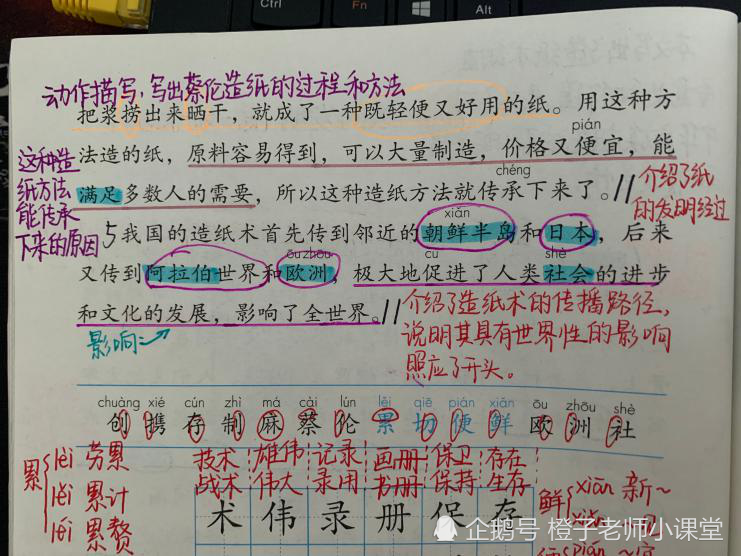 Ctrl
Alt
动作描写,写出蔡伦造纸的过程和方法
把浆捞出来晒干，就成了一种既轻便又好用的纸。用这种方
pián
法造的纸，原料容易得到，可以大量制造，价格又便宜，能
chéng
满足多数人的需要，所以这种造纸方法就传承下来了。//
介绍了纸
的发明经过
这种造
纸方法,
能传承
下来的原因
xiǎn
5 我国的造纸术首先传到邻近的朝鲜半岛和日本，后来
ōu zhōu
又传到阿拉伯世界和欧洲，极大地促进了人类社会的进步
cù shè
和文化的发展，影响了全世界。//
影响→
介绍了造纸术的传播路径,
说明其具有世界性的影响
照应了开头。
chuàng xié cún zhì má cài lún lěi qiē pián xiǎn ōu zhōu shè
创 携 存 制 麻 蔡 伦 累 切 便 鲜 欧 洲 社
累
lèi 劳累
lěi 累计
léi 累赘
技术 雄伟 记录 画册 保卫 存在
战术 伟大 录用 书册 保持 生存
术 伟 录 册 保 存
鲜 xiān 新~
企鹅号 橙子老师小课堂